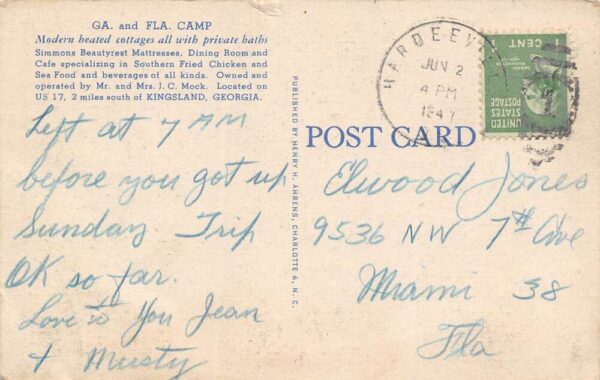 GA. and FLA. CAMP
Modern heated cottages all with private baths
Simmons Beautyrest Mattresses. Dining Room and
Cafe specializing in Southern Fried Chicken and
Sea Food and beverages of all kinds. Owned and
operated by Mr. and Mrs. J. C. Mock. Located on
US 17, 2 miles south of KINGSLAND, GEORGIA.
Left at 7 AM
before you got up
Sunday Trip
OK so far.
Love to You Jean
+ Musty
PUBLISHED BY HENRY H. AHRENS, CHARLOTTE 6, N. C.
POST CARD
HARDEEV
JUN 2
4 PM
1947
1 CENT 1
UNITED
STATES
POSTAGE
Elwood Jones
9536 NW 7th Ave
Miami 38
Fla